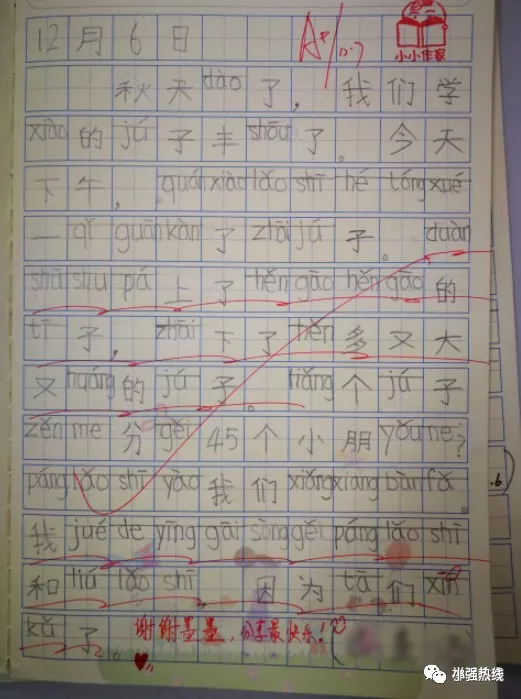 12月6日
A+
小小作家
秋天dào了，我们学
xiào的jú子丰shōu了。今天
下午，quánxiàolǎoshī hé tóngxué
一qǐ guānkàn了zhāijú子。duàn
shūshu pá上了hěngāo hěngāo的
tī子，zhāi下了hěn多又大
又huáng的jú子。liǎng个jú子
zěn me分gěi 45个小朋yǒune？
páng lǎo shī yào我们xiǎngxiang bàn fǎ。
我jué de yīng gāi sòng gěi páng lǎo shī
和liú lǎo shī，因为tā们xīn
kǔ了
谢谢墨墨，分享最快乐！
.6
枣强热线